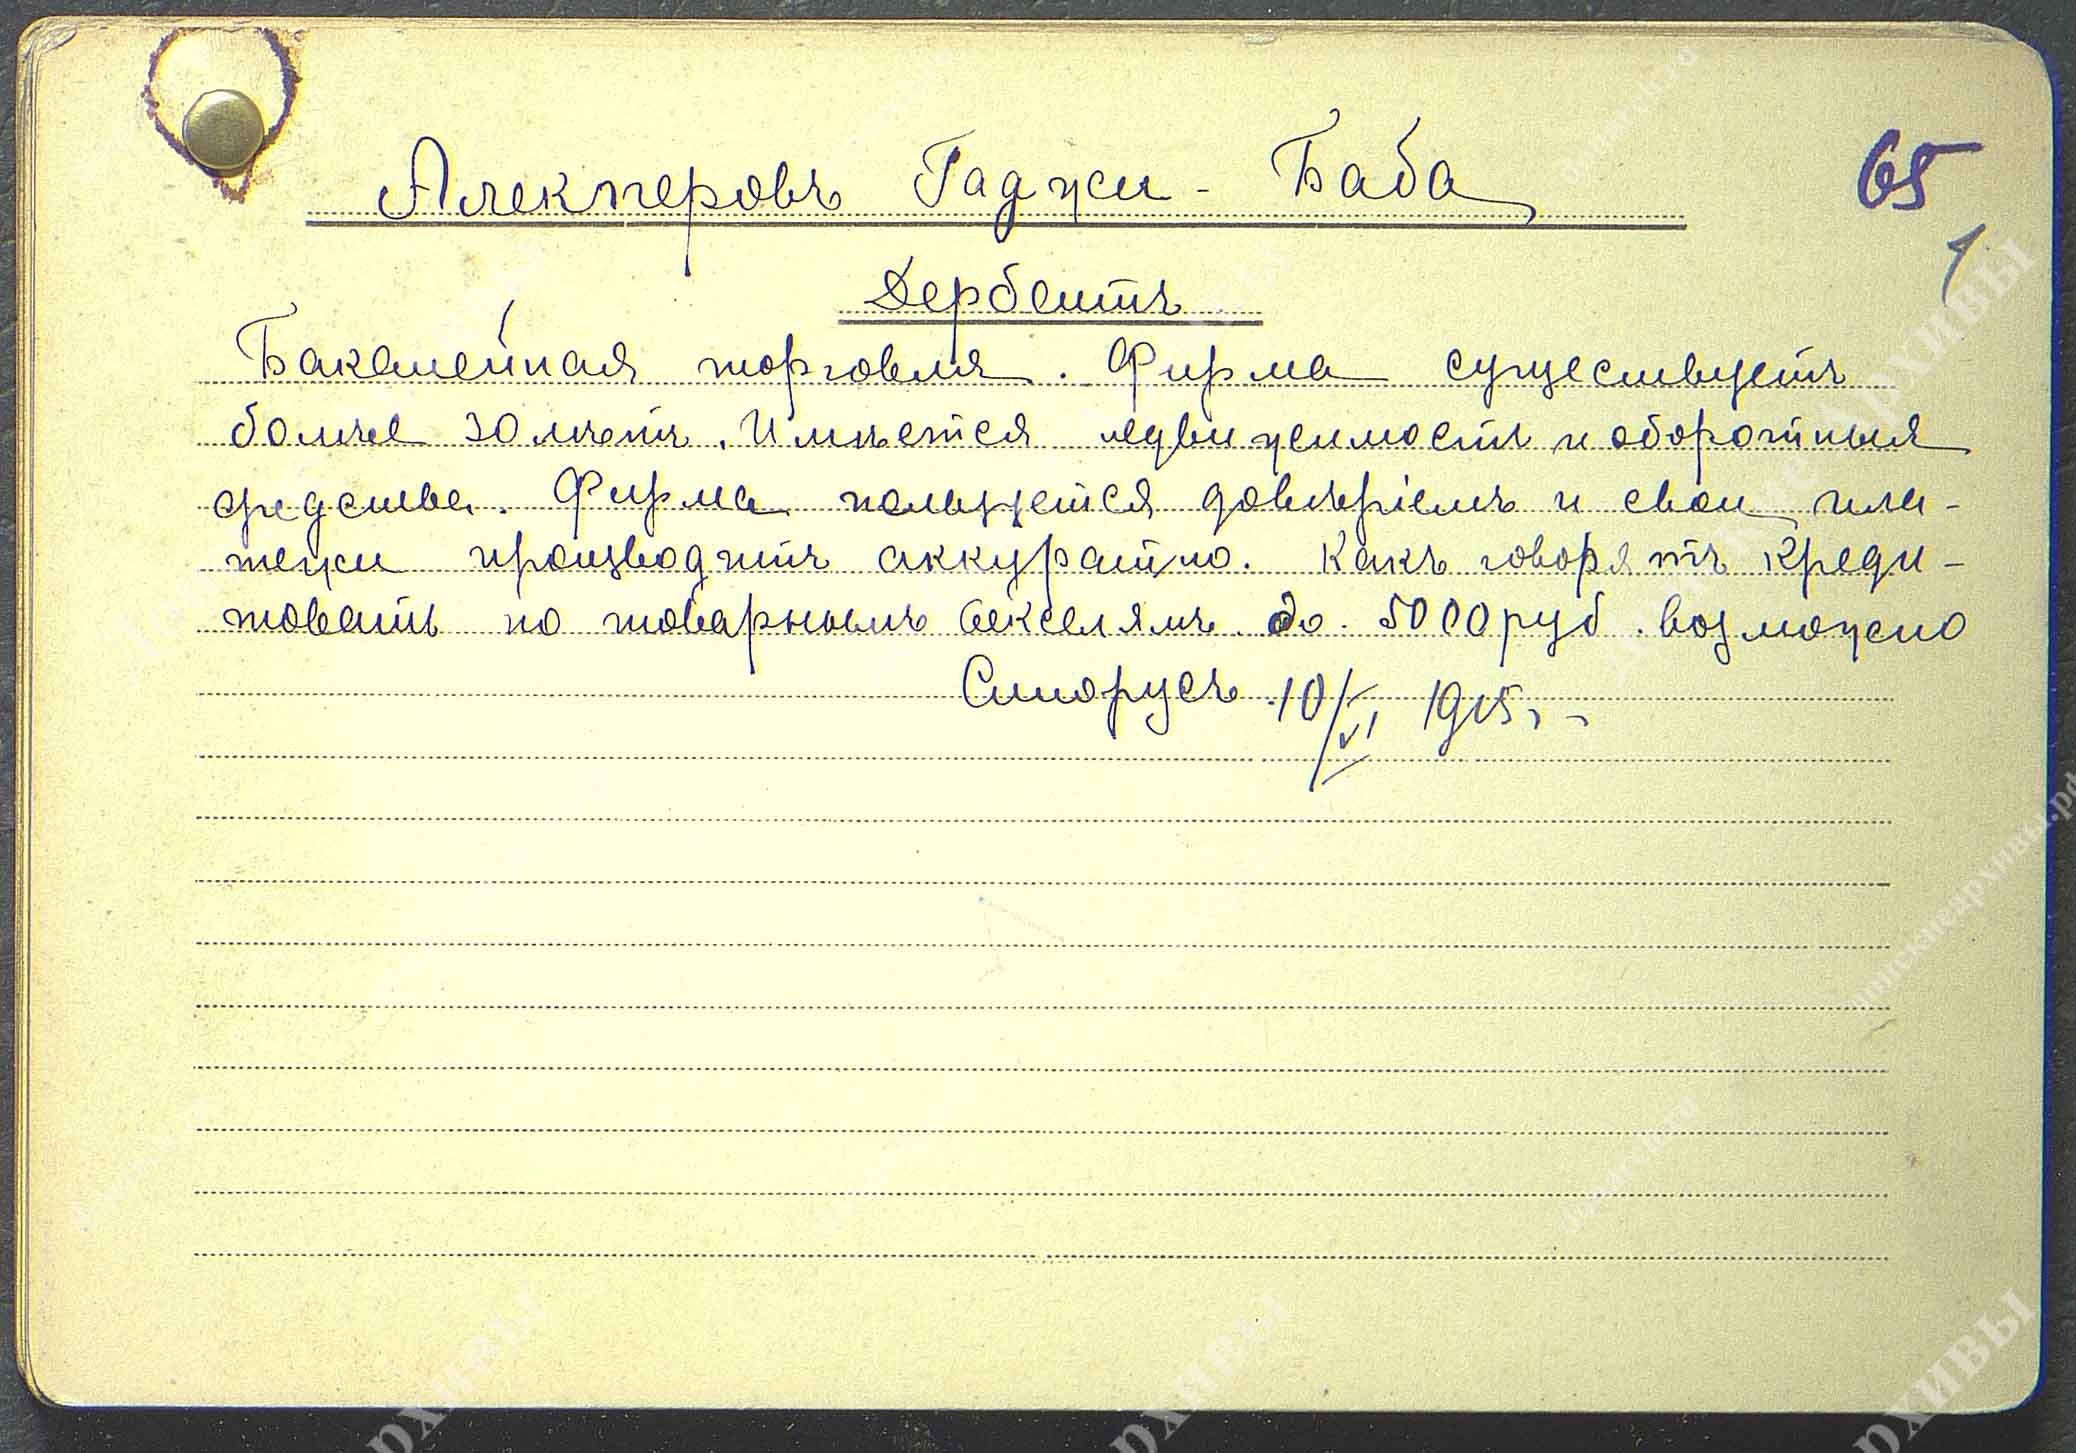 Алекперовъ Гаджи - Баба
65
1
Дербентъ
Бакалейная торговля. Фирма существуетъ
болѣе 30 лѣтъ. Имѣется недвижимость и оборотныя
средства. Фирма пользуется довѣріемъ и свои пла-
тежи производитъ аккуратно. Какъ говорятъ креди-
товать по товарнымъ векселямъ до 5000 руб. возможно
10/VI 1915 г.